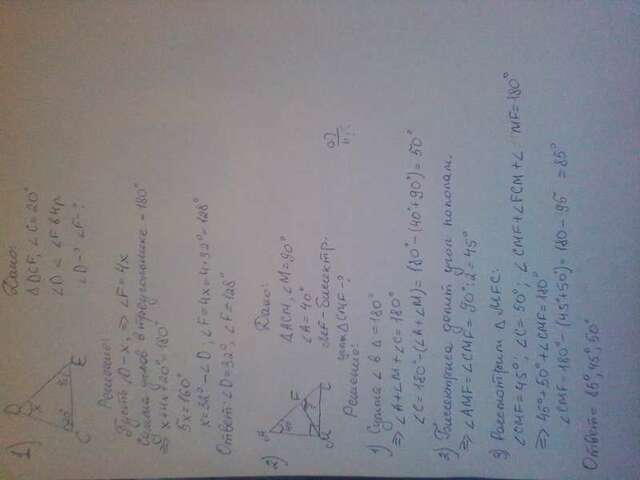 1)
Дано:
Δ DCF, ∠C=20°
∠D < ∠F в 4р
∠D-? ∠F-?
D
x
20°
C
E
Решение:
Пусть ∠D-x. ⇒ ∠F=4x
Сумма углов в треугольнике = 180°
⇒ x+4x+20°=180°
5x=160°
x=32°-∠D, ∠F=4x=4·32°=128°
Ответ: ∠D=32°, ∠F=128°
2)
Дано:
ΔACM, ∠M=90°
∠A=40°
MF-биссектр.
углы ΔCMF-?
A
40
F
M
C
Решение:
1) Сумма ∠ в Δ=180°
⇒ ∠A+∠M+∠C=180°
∠C=180°-(∠A+∠M)=180°-(40°+90°)=50°
2) Биссектриса делит угол пополам.
⇒ ∠AMF=∠CMF=90°:2=45°
3) Рассмотрим Δ MFC:
∠CMF=45°, ∠C=50°, ∠CMF+∠FCM+∠ MF=180°
⇒ 45°+50°+∠CMF=180°
∠CMF=180°-(45°+50°)=180-95 =85°
Ответ: 85°, 45°, 50°